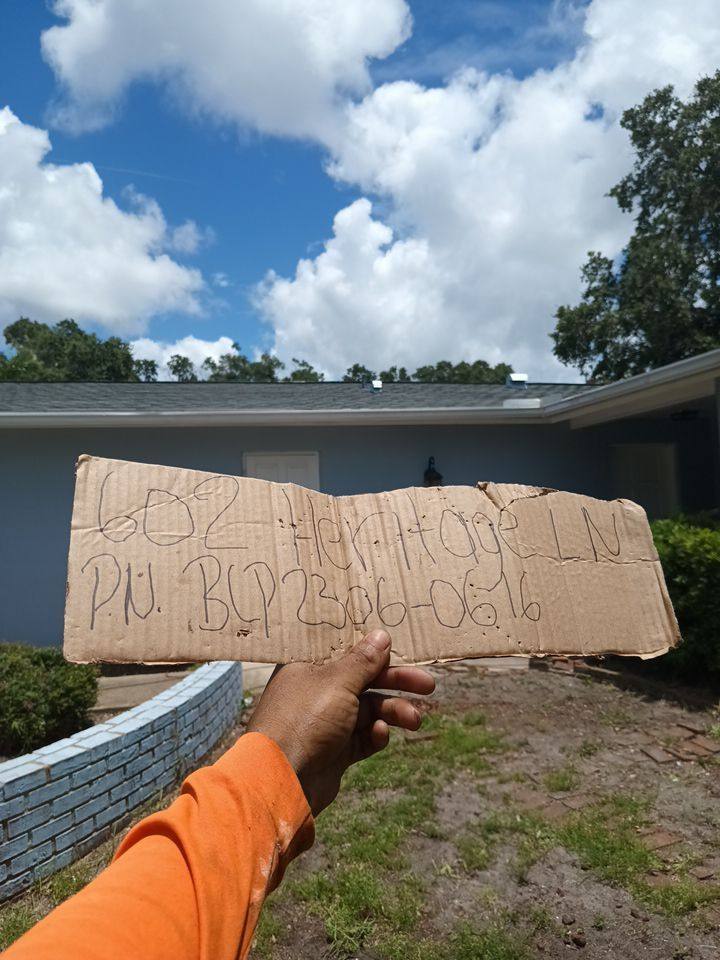 602 Heritage LN
P.N. BLP2306-0616